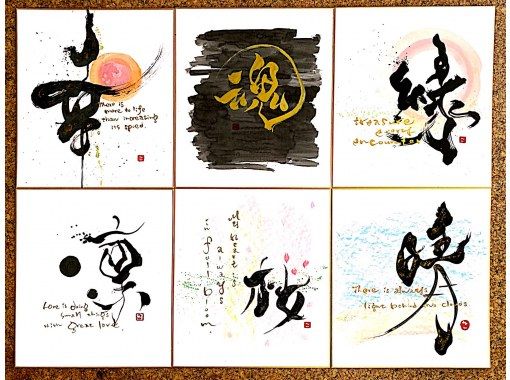 There is
more to life
than increasing
its speed.
魂
treasure
every
encounter
small things
with great love
My heart is
always
in full bloom.
桜
晴
There is always
light behind the clouds